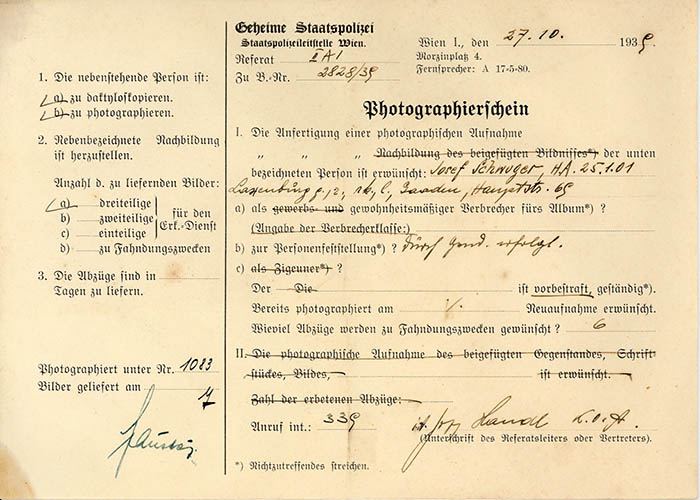 1. Die nebenstehende Person ist:
a) zu daktyloskopieren.
b) zu photographieren.
2. Nebenbezeichnete Nachbildung
ist herzustellen.
Anzahl d. zu liefernden Bilder:
a) dreiteilige
b) zweiteilige
c) einteilige
für den
Erk.-Dienst
d) zu Fahndungszwecken
3. Die Abzüge sind in
Tagen zu liefern.
Photographiert unter Nr. 1083
Bilder geliefert am
Geheime Staatspolizei
Staatspolizeileitstelle Wien.
Referat II A 1
Zu B.-Nr. 2828/39
Wien I., den 27.10. 1939.
Morzinplatz 4.
Fernsprecher: A 17-5-80.
Photographierschein
I. Die Anfertigung einer photographischen Aufnahme
„ „ „ Nachbildung des beigefügten Bildnisses*) der unten
bezeichneten Person ist erwünscht: Josef Schwoger, 25.1.01
Laxenburg Gaaden, Hauptstr. 65
a) als gewerbs- und gewohnheitsmäßiger Verbrecher fürs Album*) ?
(Angabe der Verbrecherklasse:)
b) zur Personenfeststellung*) ? Durch Gend. erfolgt.
c) als Zigeuner*) ?
Der Die ist vorbestraft, geständig*).
Bereits photographiert am Neuaufnahme erwünscht.
Wieviel Abzüge werden zu Fahndungszwecken gewünscht ? 6
II. Die photographische Aufnahme des beigefügten Gegenstandes, Schrift-
stückes, Bildes, ist erwünscht.
Zahl der erbetenen Abzüge:
Anruf int.: 339
(Unterschrift des Referatsleiters oder Vertreters).
*) Nichtzutreffendes streichen.